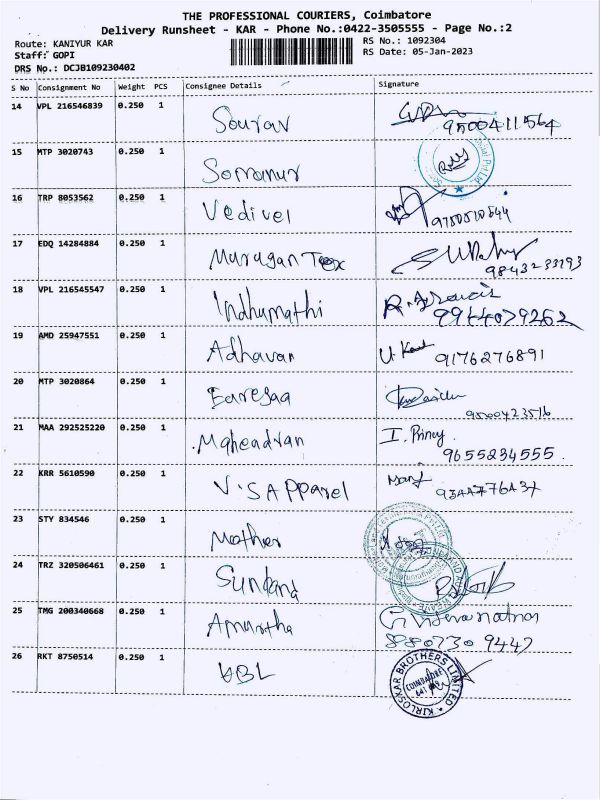 THE PROFESSIONAL COURIERS, Coimbatore
Delivery Runsheet - KAR - Phone No.:0422-3505555 - Page No.:2
Route: KANIYUR KAR
RS No.: 1092304
Staff: GOPI
RS Date: 05-Jan-2023
DRS No.: DCJB109230402
S No Consignment No Weight PCS Consignee Details Signature
14 VPL 216546839 0.250 1 Sourav 9500411564
15 MTP 3020743 0.250 1
16 TRP 8053562 0.250 1 Vedivel 9750510544
17 EDQ 14284884 0.250 1 Murugan Tex 9843233193
18 VPL 216545547 0.250 1 Indhumathi 9944079262
19 AMD 25947551 0.250 1 Adhavan 9176276891
20 MTP 3020864 0.250 1 9500423516
21 MAA 292525220 0.250 1 Maheadran I. Princy 9655234555
22 KRR 5610590 0.250 1 V.S Apparel
23 STY 834546 0.250 1 Mother
24 TRZ 320506461 0.250 1 Sundara
25 TMG 200340668 0.250 1 Amurtha 9442
26 RKT 8750514 0.250 1 KBL
KIRLOSKAR BROTHERS LIMITED
COIMBATORE